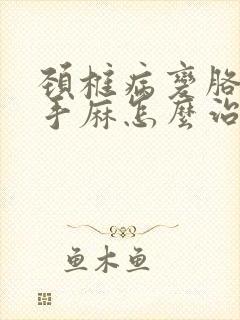 頚椎病変胳
手麻怎麼治
鱼木鱼